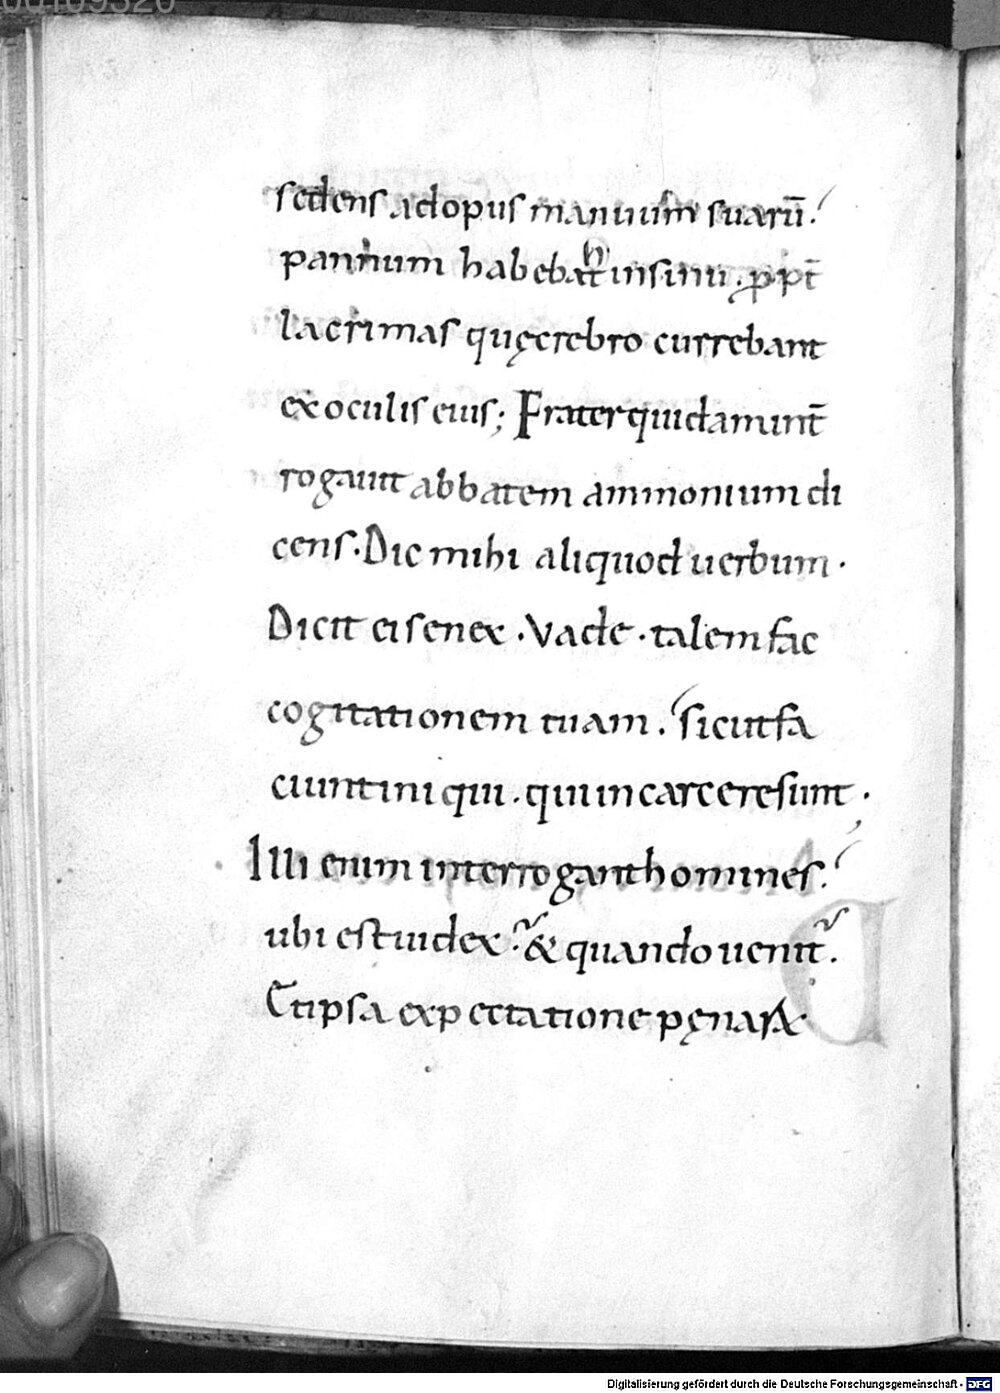 00109320
sedens ad opus manuum suarū.
pannum habebat in sinu. ꝓpt̄
lacrimas quę crebro currebant
ex oculis eius; Frater quidam int̄
rogauit abbatem ammonium di
cens. Dic mihi aliquod uerbum.
Dicit ei senex. Vade. talem fac
cogitationem tuam. sicut fa
ciunt iniqui. qui in carcere sunt.
Illi enim interrogant homines.
ubi est iudex? & quando uenit?
Et ipsa expectatione pęnarū
Digitalisierung gefördert durch die Deutsche Forschungsgemeinschaft - DFG